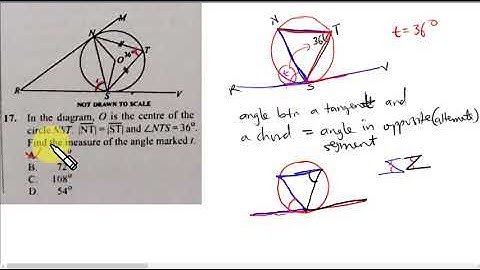 M
N
36°
T
O
t
R
S
V
NOT DRAWN TO SCALE
17. In the diagram, O is the centre of the
circle NST, |NT| = |ST| and ∠NTS = 36°.
Find the measure of the angle marked t.
A.
B. 72°
C. 108°
D. 54°
N
T
36°
t
R
S
V
t = 36°
angle btn a tangent and
a chord = angle in opposite (alternate)
segment